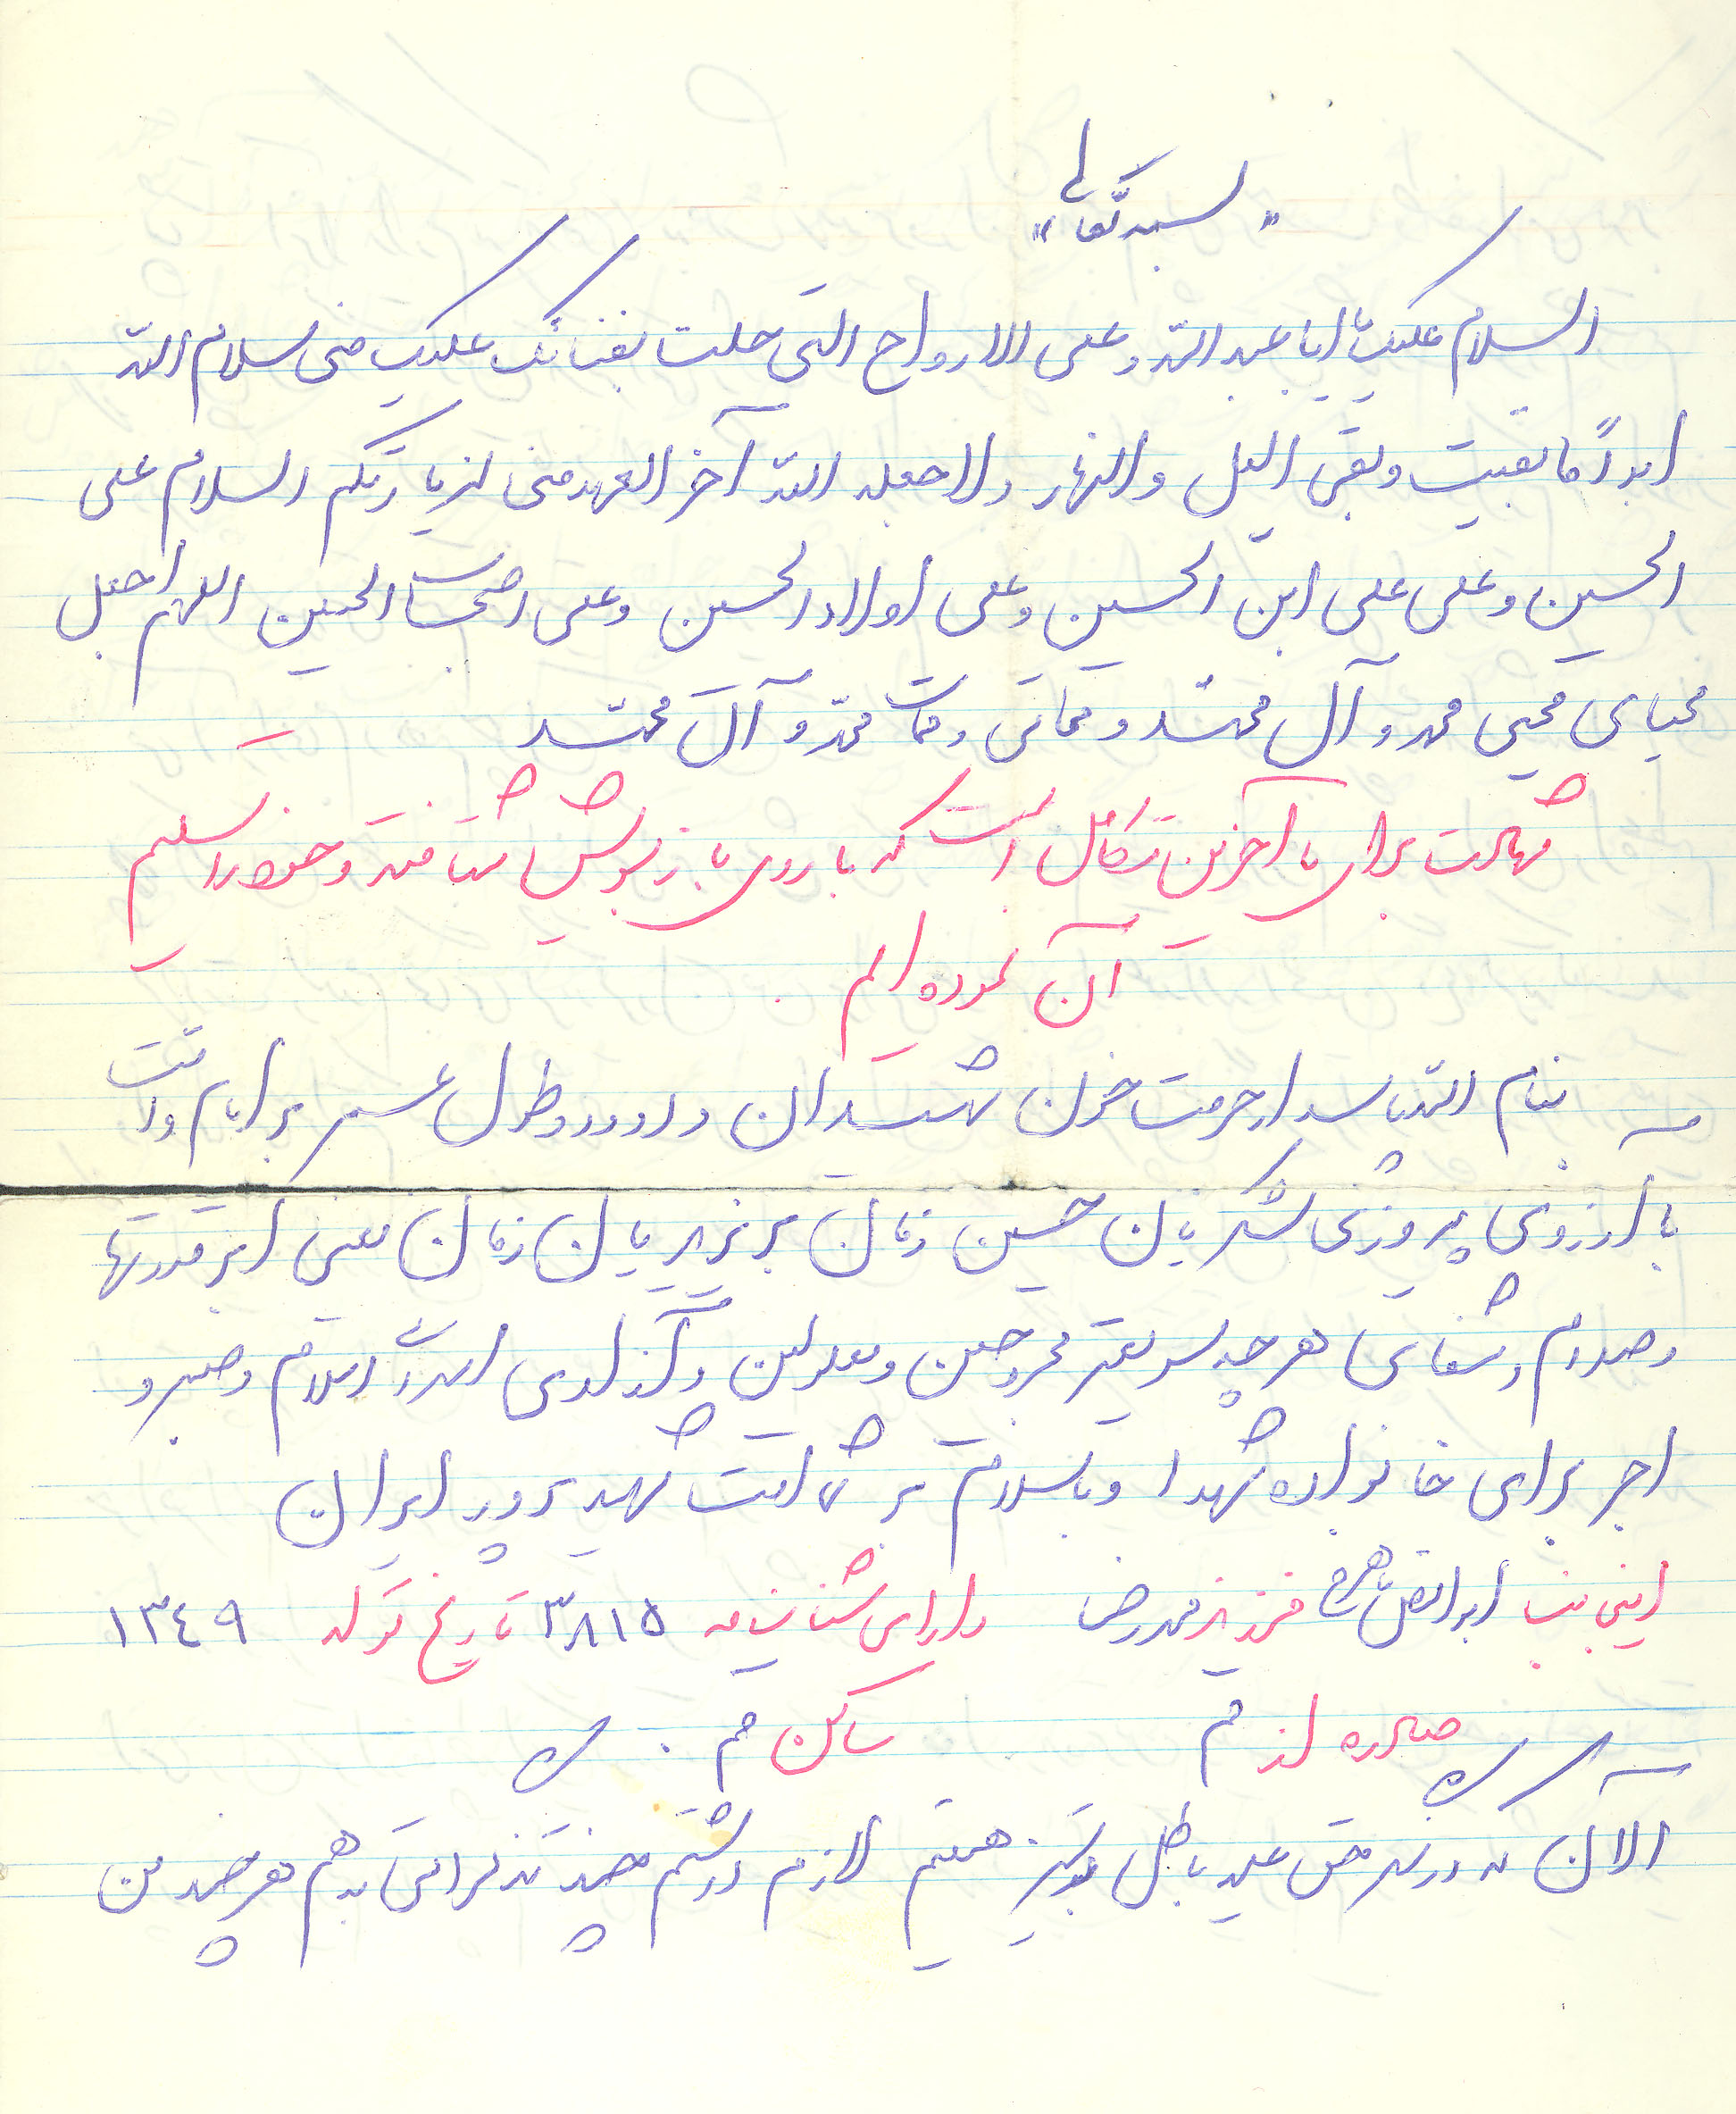 «بسمه تعالی»
السلام علیک یا ابا عبد الله و علی الارواح التی حلت بفنائک علیک منی سلام الله
ابداً ما بقیت و بقی الیل و النهار و لا جعله الله آخر العهد منی لزیارتکم السلام علی
الحسین و علی علی ابن الحسین و علی اولاد الحسین و علی اصحاب الحسین اللهم اجعل
محیای محیی محمد و آل محمد و مماتی ممات محمد و آل محمد
شهادت برای ما آخرین تکامل است که با روی باز بسویش شتافته و خود را تسلیم
آن نموده ایم
بنام الله پاسدار حرمت خون شهیدان و درود و طول عمر بر امام و امت
با آرزوی پیروزی لشکریان حسین زمان بر یزیدیان زمان یعنی ابر قدرتها
و صدام و شفای هر چه سریعتر مجروحین و معلولین و آزادی اسرای اسلام و صبر و
اجر برای خانواده شهدا و با سلام بر شما امت شهید پرور ایران
اینجانب ابوالفضل فرزند محمدرضا دارای شناسنامه ۳۸۱۵ تاریخ تولد ۱۳۴۹
صادره از قم ساکن قم
الآن که در نبرد حق علیه باطل هستیم لازم دانستم چند تذکراتی بدهم هر چند من